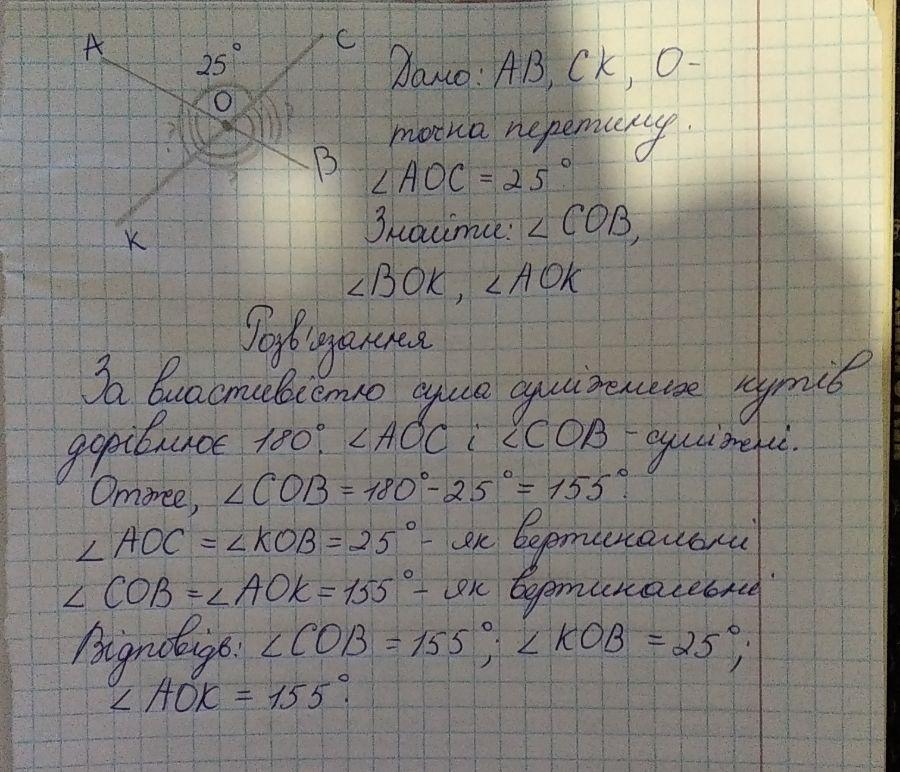 A
C
25°
O
B
K
Дано: AB, CK, O-
точка перетину.
∠AOC = 25°
Знайти: ∠COB,
∠BOK, ∠AOK
Розв'язання
За властивістю сума суміжних кутів
дорівнює 180°. ∠AOC і ∠COB - суміжні.
Отже, ∠COB = 180° - 25° = 155°.
∠AOC = ∠KOB = 25° - як вертикальні
∠COB = ∠AOK = 155° - як вертикальні
Відповідь: ∠COB = 155°; ∠KOB = 25°;
∠AOK = 155°.